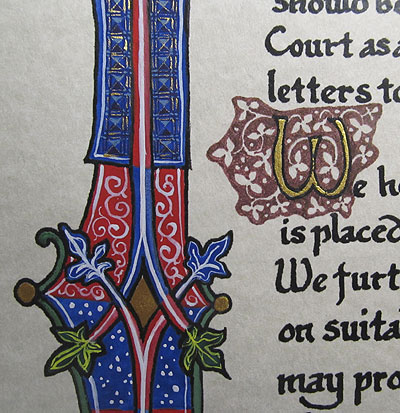 should be
Court as a
letters to
We he
is placed
We furt
on suita
may pro